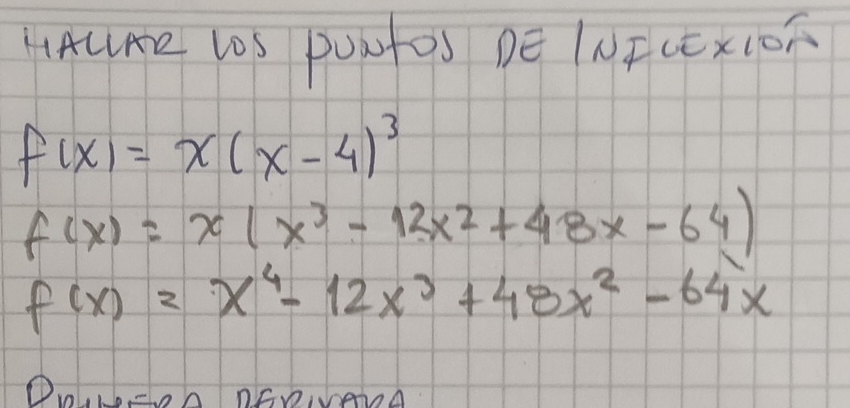 HALLAR LOS PUNTOS DE INFLEXIÓN
f(x) = x(x-4)³
f(x) = x(x³ - 12x² + 48x - 64)
f(x) = x⁴ - 12x³ + 48x² - 64x
PRIMERA DERIVADA